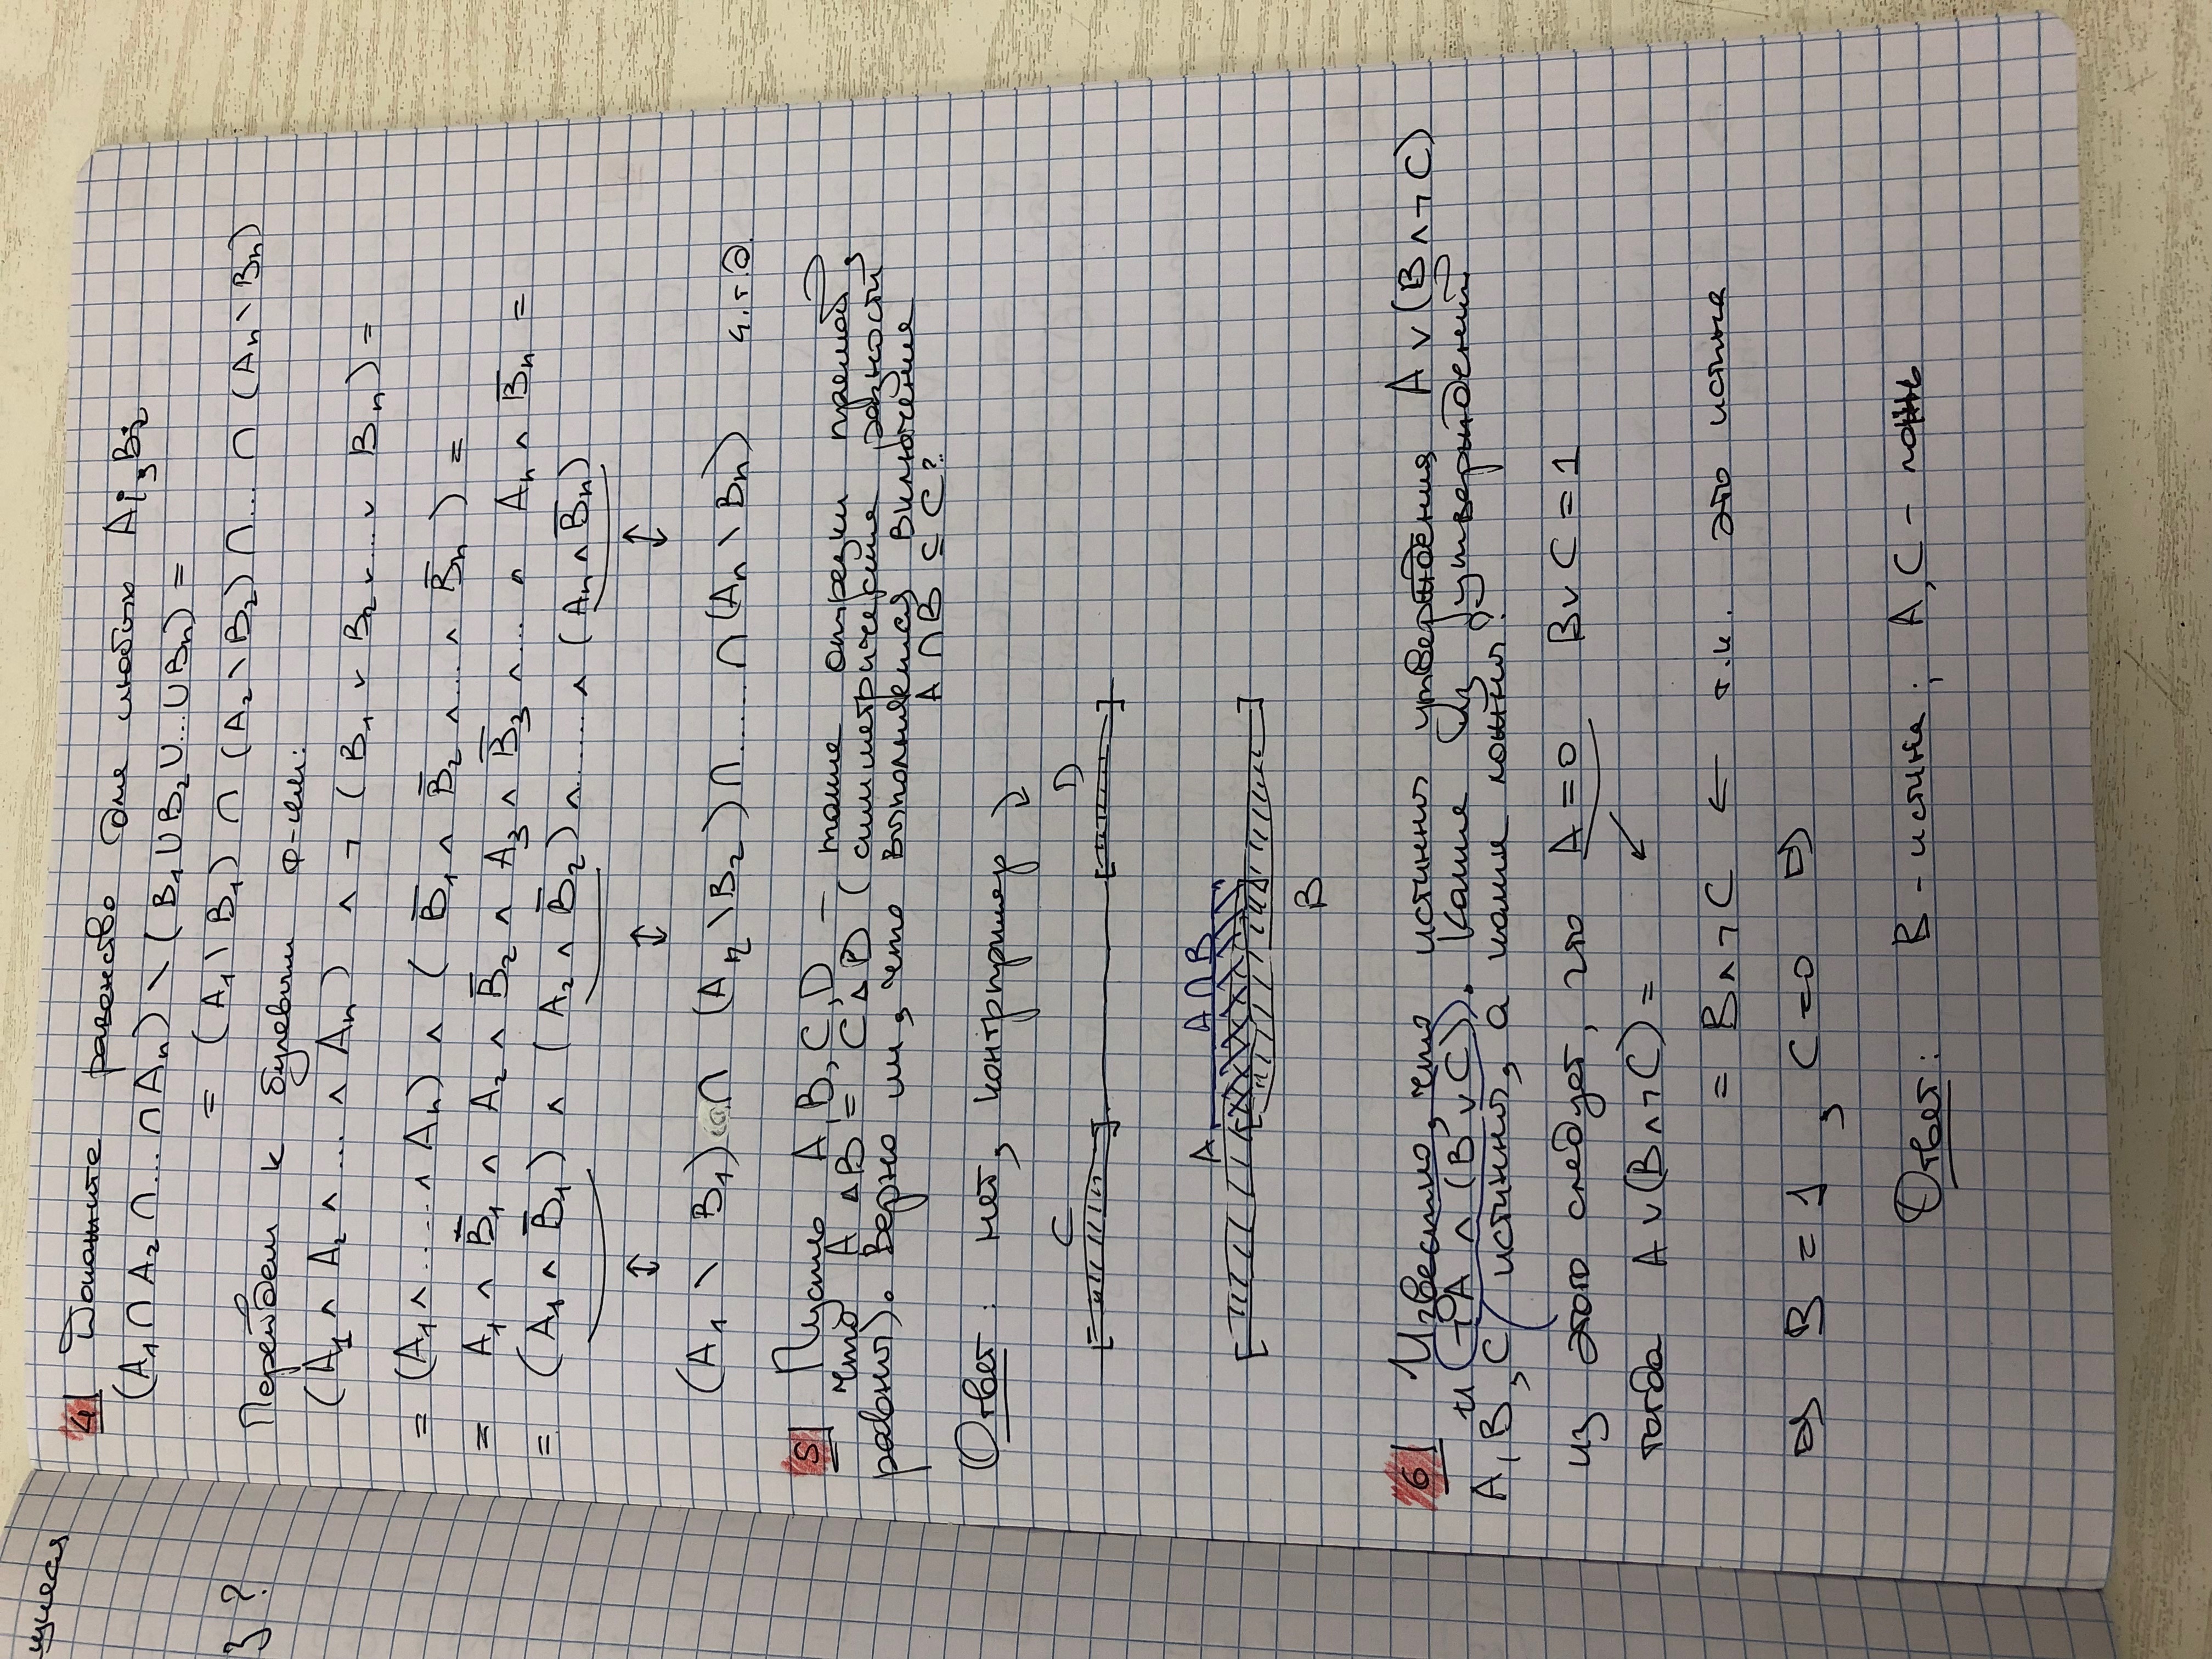 щиеся
з ?
4 Докажите равенство для любых Ai, Bi
(A₁ ∩ A₂ ∩ ... ∩ Aₙ) \ (B₁ ∪ B₂ ∪ ... ∪ Bₙ) =
= (A₁ \ B₁) ∩ (A₂ \ B₂) ∩ ... ∩ (Aₙ \ Bₙ)
Перейдем к булевым ф-иям:
(A₁ ∧ A₂ ∧ ... ∧ Aₙ) ∧ ¬ (B₁ ∨ B₂ ∨ ... ∨ Bₙ) =
= (A₁ ∧ ..... ∧ Aₙ) ∧ ( B̅₁ ∧ B̅₂ ∧ ... ∧ B̅ₙ ) =
= A₁ ∧ B̅₁ ∧ A₂ ∧ B̅₂ ∧ A₃ ∧ B̅₃ ∧ ... ∧ Aₙ ∧ B̅ₙ =
= (A₁ ∧ B̅₁) ∧ (A₂ ∧ B̅₂) ∧ ....... ∧ (Aₙ ∧ B̅ₙ)
↕ ↕ ↕
(A₁ \ B₁) ∩ (A₂ \ B₂) ∩ ...... ∩ (Aₙ \ Bₙ) ч.т.д.
5 Пусть A, B, C, D – такие отрезки прямой,
что A △ B = C △ D (симметрические разности
равны). Верно ли, что выполняется включение
A ∩ B ⊆ C?
Ответ: нет, контрпример
C D
A A ∩ B
B
6 Известно, что истинны утверждения A ∨ (B ∧ ¬ C)
и ¬A ∧ (B ∨ C). Какие из утверждений
A, B, C истинны, а какие ложны?
из этого следует, что A = 0 B ∨ C = 1
тогда A ∨ (B ∧ ¬ C) =
= B ∧ ¬ C ← т.к. это истина
⇒ B = 1 , C = 0 ⇒
Ответ: B – истина; A, C – ложь